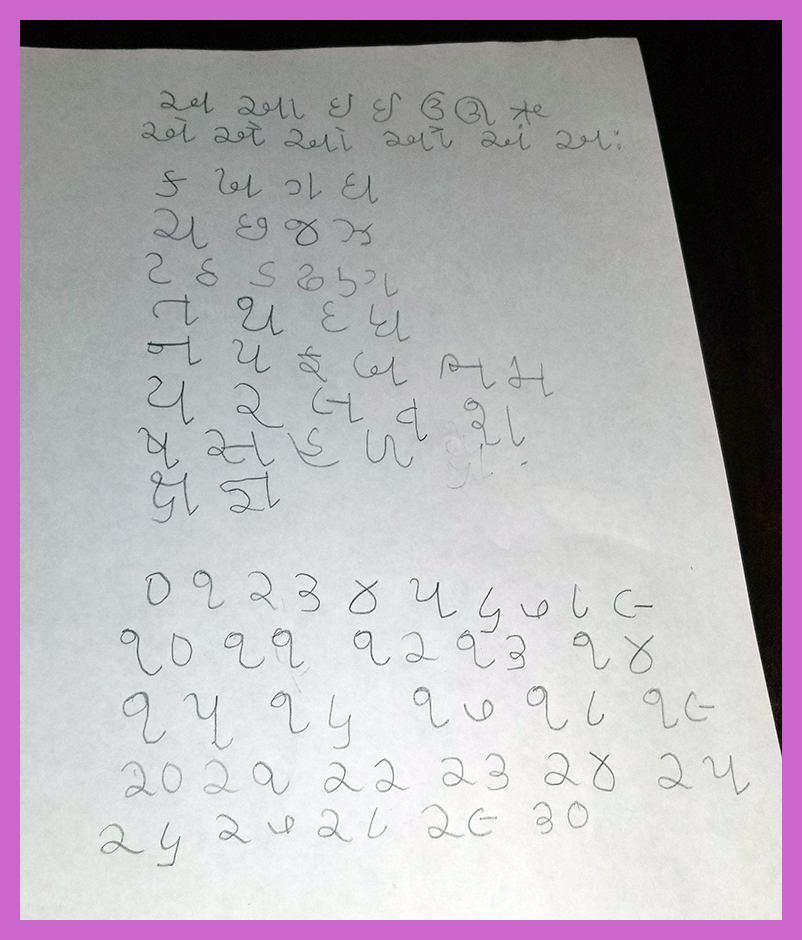 અ આ ઇ ઈ ઉ ઊ ઋ
એ ઐ ઓ ઔ અં અઃ
ક ખ ગ ઘ
ચ છ જ ઝ
ટ ઠ ડ ઢ ણ
ત થ દ ધ
ન પ ફ બ ભ મ
ય ર લ વ શ
ષ સ હ ળ
ક્ષ જ્ઞ
૦ ૧ ૨ ૩ ૪ ૫ ૬ ૭ ૮ ૯
૧૦ ૧૧ ૧૨ ૧૩ ૧૪
૧૫ ૧૬ ૧૭ ૧૮ ૧૯
૨૦ ૨૧ ૨૨ ૨૩ ૨૪ ૨૫
૨૬ ૨૭ ૨૮ ૨૯ ૩૦